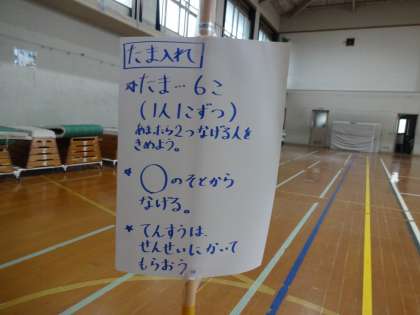 たま入れ
★たま…6こ
(1人1こずつ)
あまったら2つなげる人を
きめよう。
★◯のそとから
なげる。
★てんすうは、
せんせいにかいて
もらおう。